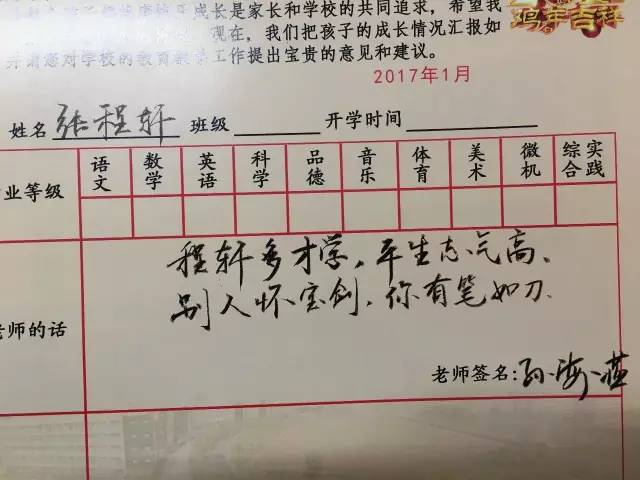 鸡年吉祥
成长是家长和学校的共同追求，希望我
现在，我们把孩子的成长情况汇报如
并请您对学校的教育教学工作提出宝贵的意见和建议。
2017年1月
姓名 张程轩 班级 开学时间
业等级 语文 数学 英语 科学 品德 音乐 体育 美术 微机 综合实践
程轩多才学，平生志气高、
别人怀宝剑，你有笔如刀.
老师的话
老师签名：孙海燕